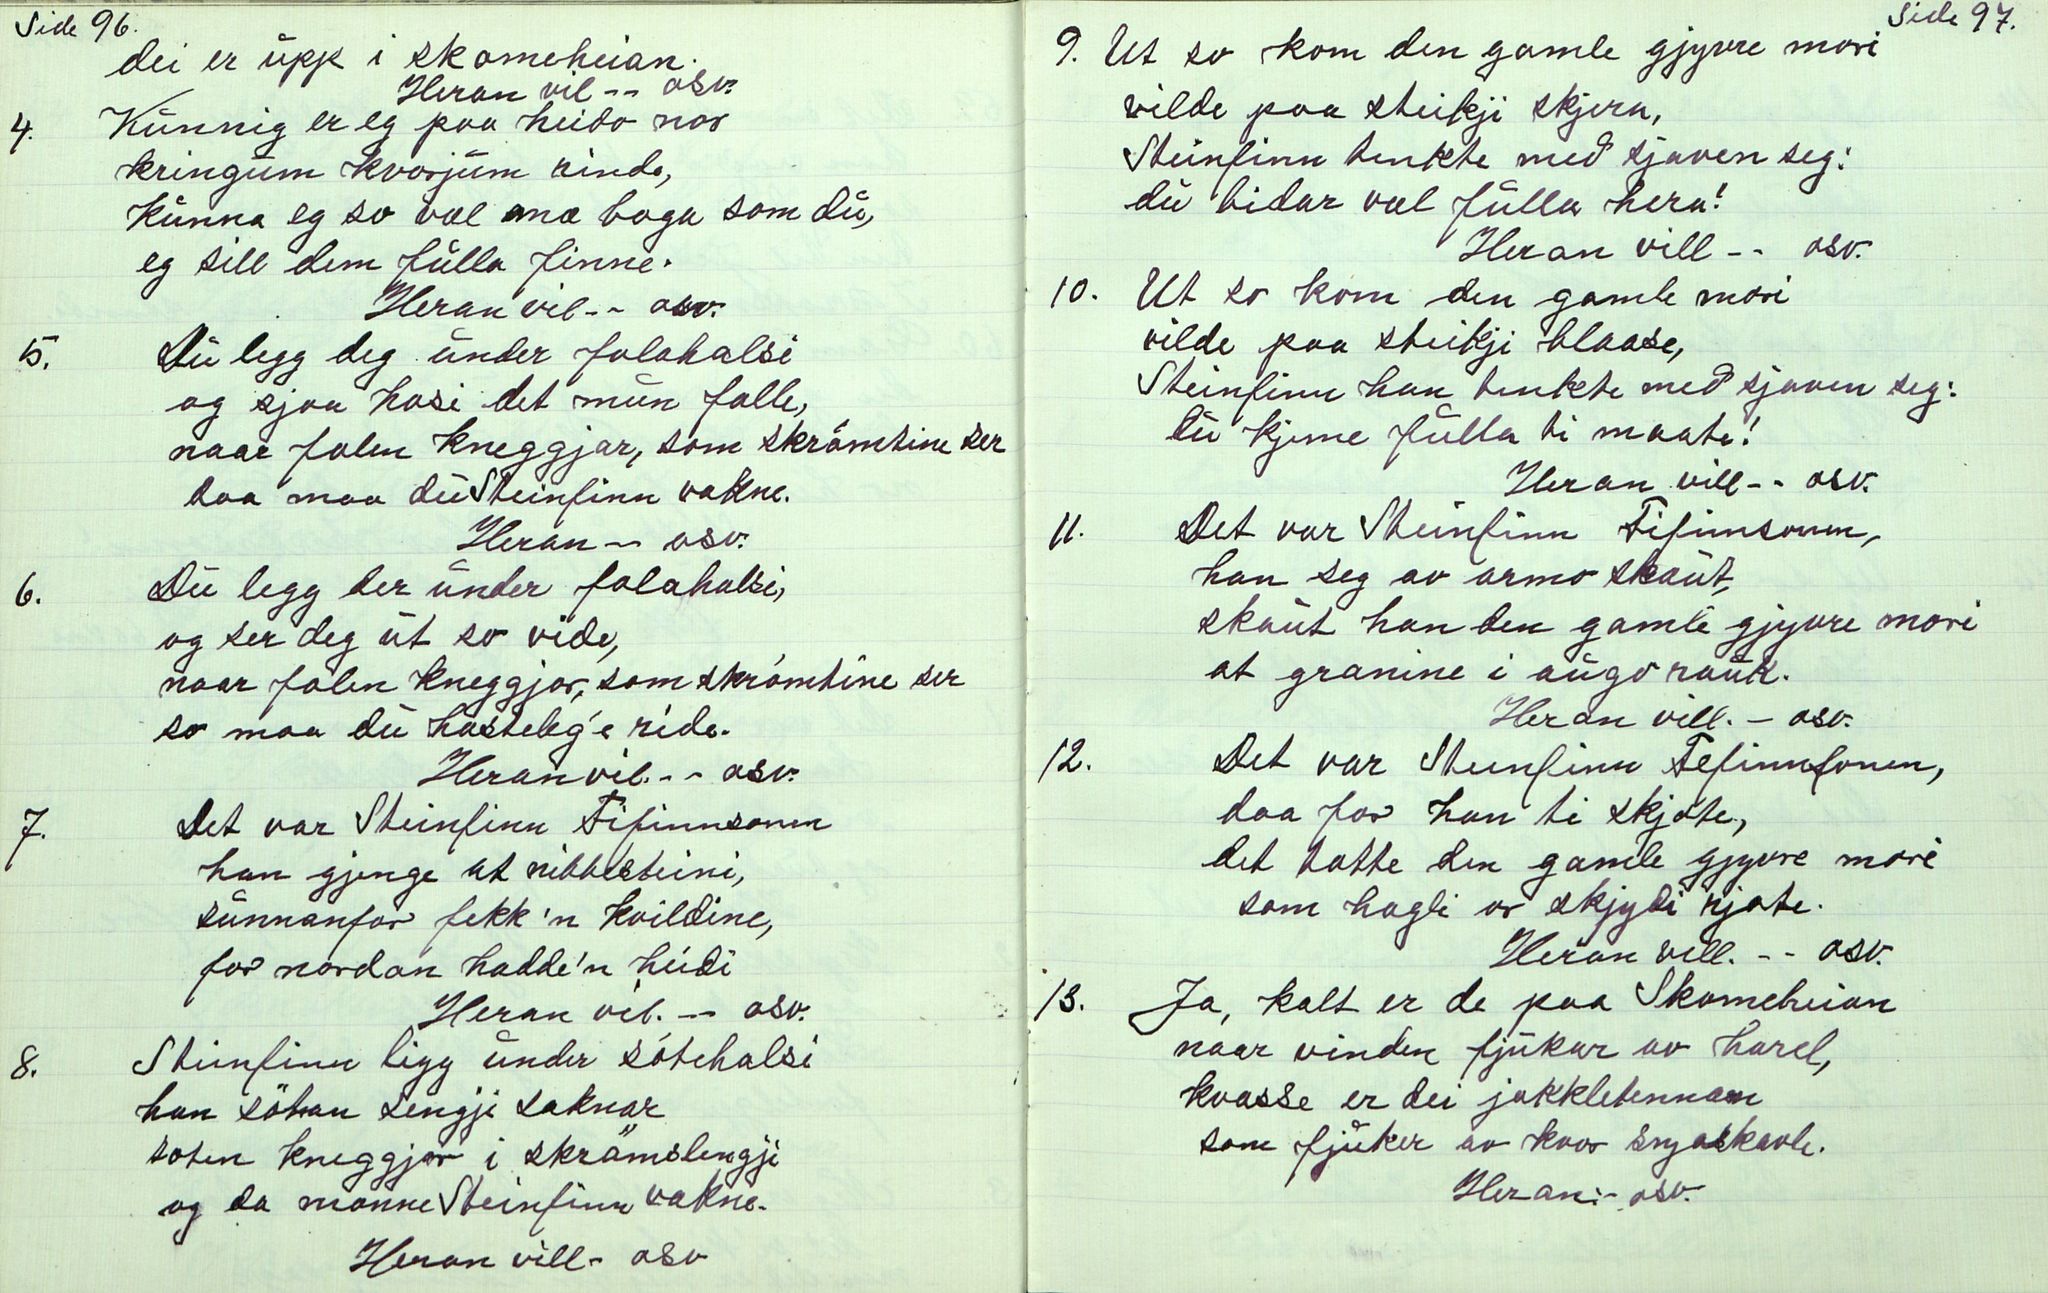 Side 96.
dei er upp i skomeheian.
Heran vil -- osv.
4. Kunnig er eg paa heido nor
kringum kvorjum rinde,
kunna eg so væl mæ boga som du,
eg sill dem fulla finne.
Heran vil -- osv.
5. Du legg deg under folahalsi
og sjaa hosi det mun falle,
naar folen kneggjar, som skrämtine ser
daa maa du Steinfinn vakne.
Heran -- osv.
6. Du legg der under folahalsi,
og ser deg ut so vide,
naar folen kneggjar, som skrömtine ser
so maa du hasteleg'e ride.
Heran vil. -- osv.
7. Det var Steinfinn Fifinnsonen
han gjenge at nibbesteini,
sunnanfor fekk'n kvildine,
for nordan hadde'n heidi
Heran vil. -- osv.
8. Steinfinn ligg under sótehalsi
han söhan sengji saknar
soten kneggjar i skrämslengji
og da monne Steinfinn vakne.
Heran vill - osv
Side 97.
9. Ut so kom den gamle gjyvre mori
vilde paa steikji skjera,
Steinfinn tenkte med sjaven seg:
du bidar væl fulla hera!
Heran vill -- osv.
10. Ut so kom den gamle mori
vilde paa steikji blaase,
Steinfinn han tenkte med sjaven seg:
du kjeme fulla ti maate!
Heran vill -- osv.
11. Det var Steinfinn Fifinnsonen,
han seg av armo skaut,
skaut han den gamle gjyvre mori
at granine i augo rauk.
Heran vill. - osv.
12. Det var Steinfinn Fefinnsonen,
daa for han ti skjóte,
det totte den gamle gjyvre mori
som hagli or skjydi rjote.
Heran vill. -- osv.
13. Ja, kalt er de paa Skomeheian
naar vinden fjukar av harel,
kvasse er dei jakkletennan
som fjuker av kvor snjoskavle.
Heran:- osv.